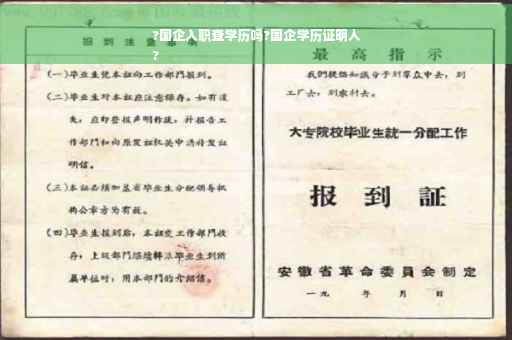 ?国企入职查学历吗?国企学历证明人
?
报到注意事项
(一)毕业生凭本证向工作部门报到。
(二)毕业生对本证应注意保存。如有遗
失,应即登报声明作废,并报告工
作部门和向原发证机关申请补发证
明信。
(三)本证必须加盖省毕业生分配领导机
构公章方为有效。
(四)毕业生报到后,本证交工作部门收
存;上级部门继续转派毕业生到所
属单位时,用本部门的介绍信。
最高指示
我们提倡知识分子到群众中去,到
工厂去,到农村去。
大专院校毕业生统一分配工作
报到証
安徽省革命委員会制定
一九 年 月 日